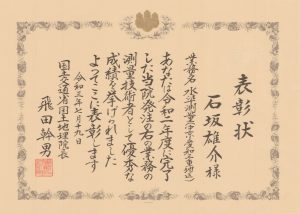 表彰状
石坂雄介様
業務名 水準測量
あなたは令和二年度に完了
した当院発注の右の業務の
測量技術者として優秀な
成績を挙げられました
よってここに表彰します
令和三年七月十九日
国土交通省国土地理院長
飛田幹男